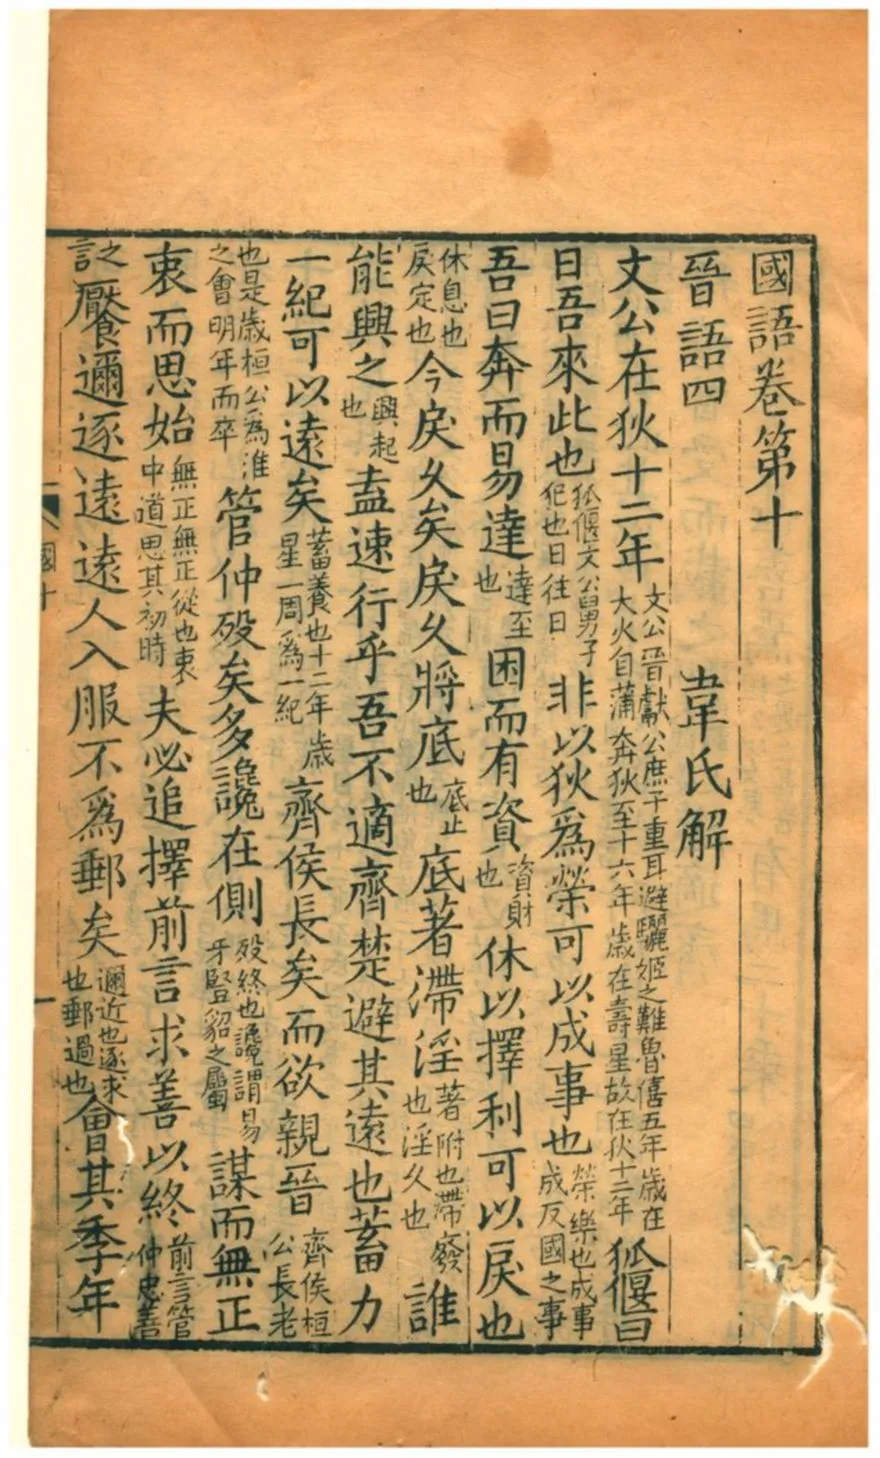 國語卷第十
晉語四 韋氏解
文公在狄十二年文公晉獻公庶子重耳避驪姬之難魯僖五年歲在大火自蒲奔狄至十六年歲在壽星故在狄十二年狐偃曰
日吾來此也狐偃文公舅男子犯也日往日非以狄爲榮可以成事也榮樂也成事成反國之事
吾曰奔而易達達至也困而有資資財也休以擇利可以戾也
休息也戾定也今戾久矣戾久將底底止也底著滯淫著附也滯廢也淫久也誰
能興之興起也盍速行乎吾不適齊楚避其遠也蓄力
一紀可以遠矣蓄養也十二年歲星一周爲一紀齊侯長矣而欲親晉齊侯桓公長老
也是歲桓公爲淮之會明年而卒管仲歿矣多讒在側歿終也讒謂易牙豎貂之屬謀而無正
衷而思始無正無正從也衷中道思其初時夫必追擇前言求善以終前言管仲忠善
之言饜邇逐遠遠人入服不爲郵矣邇近也逐求也郵過也會其季年
國十
一